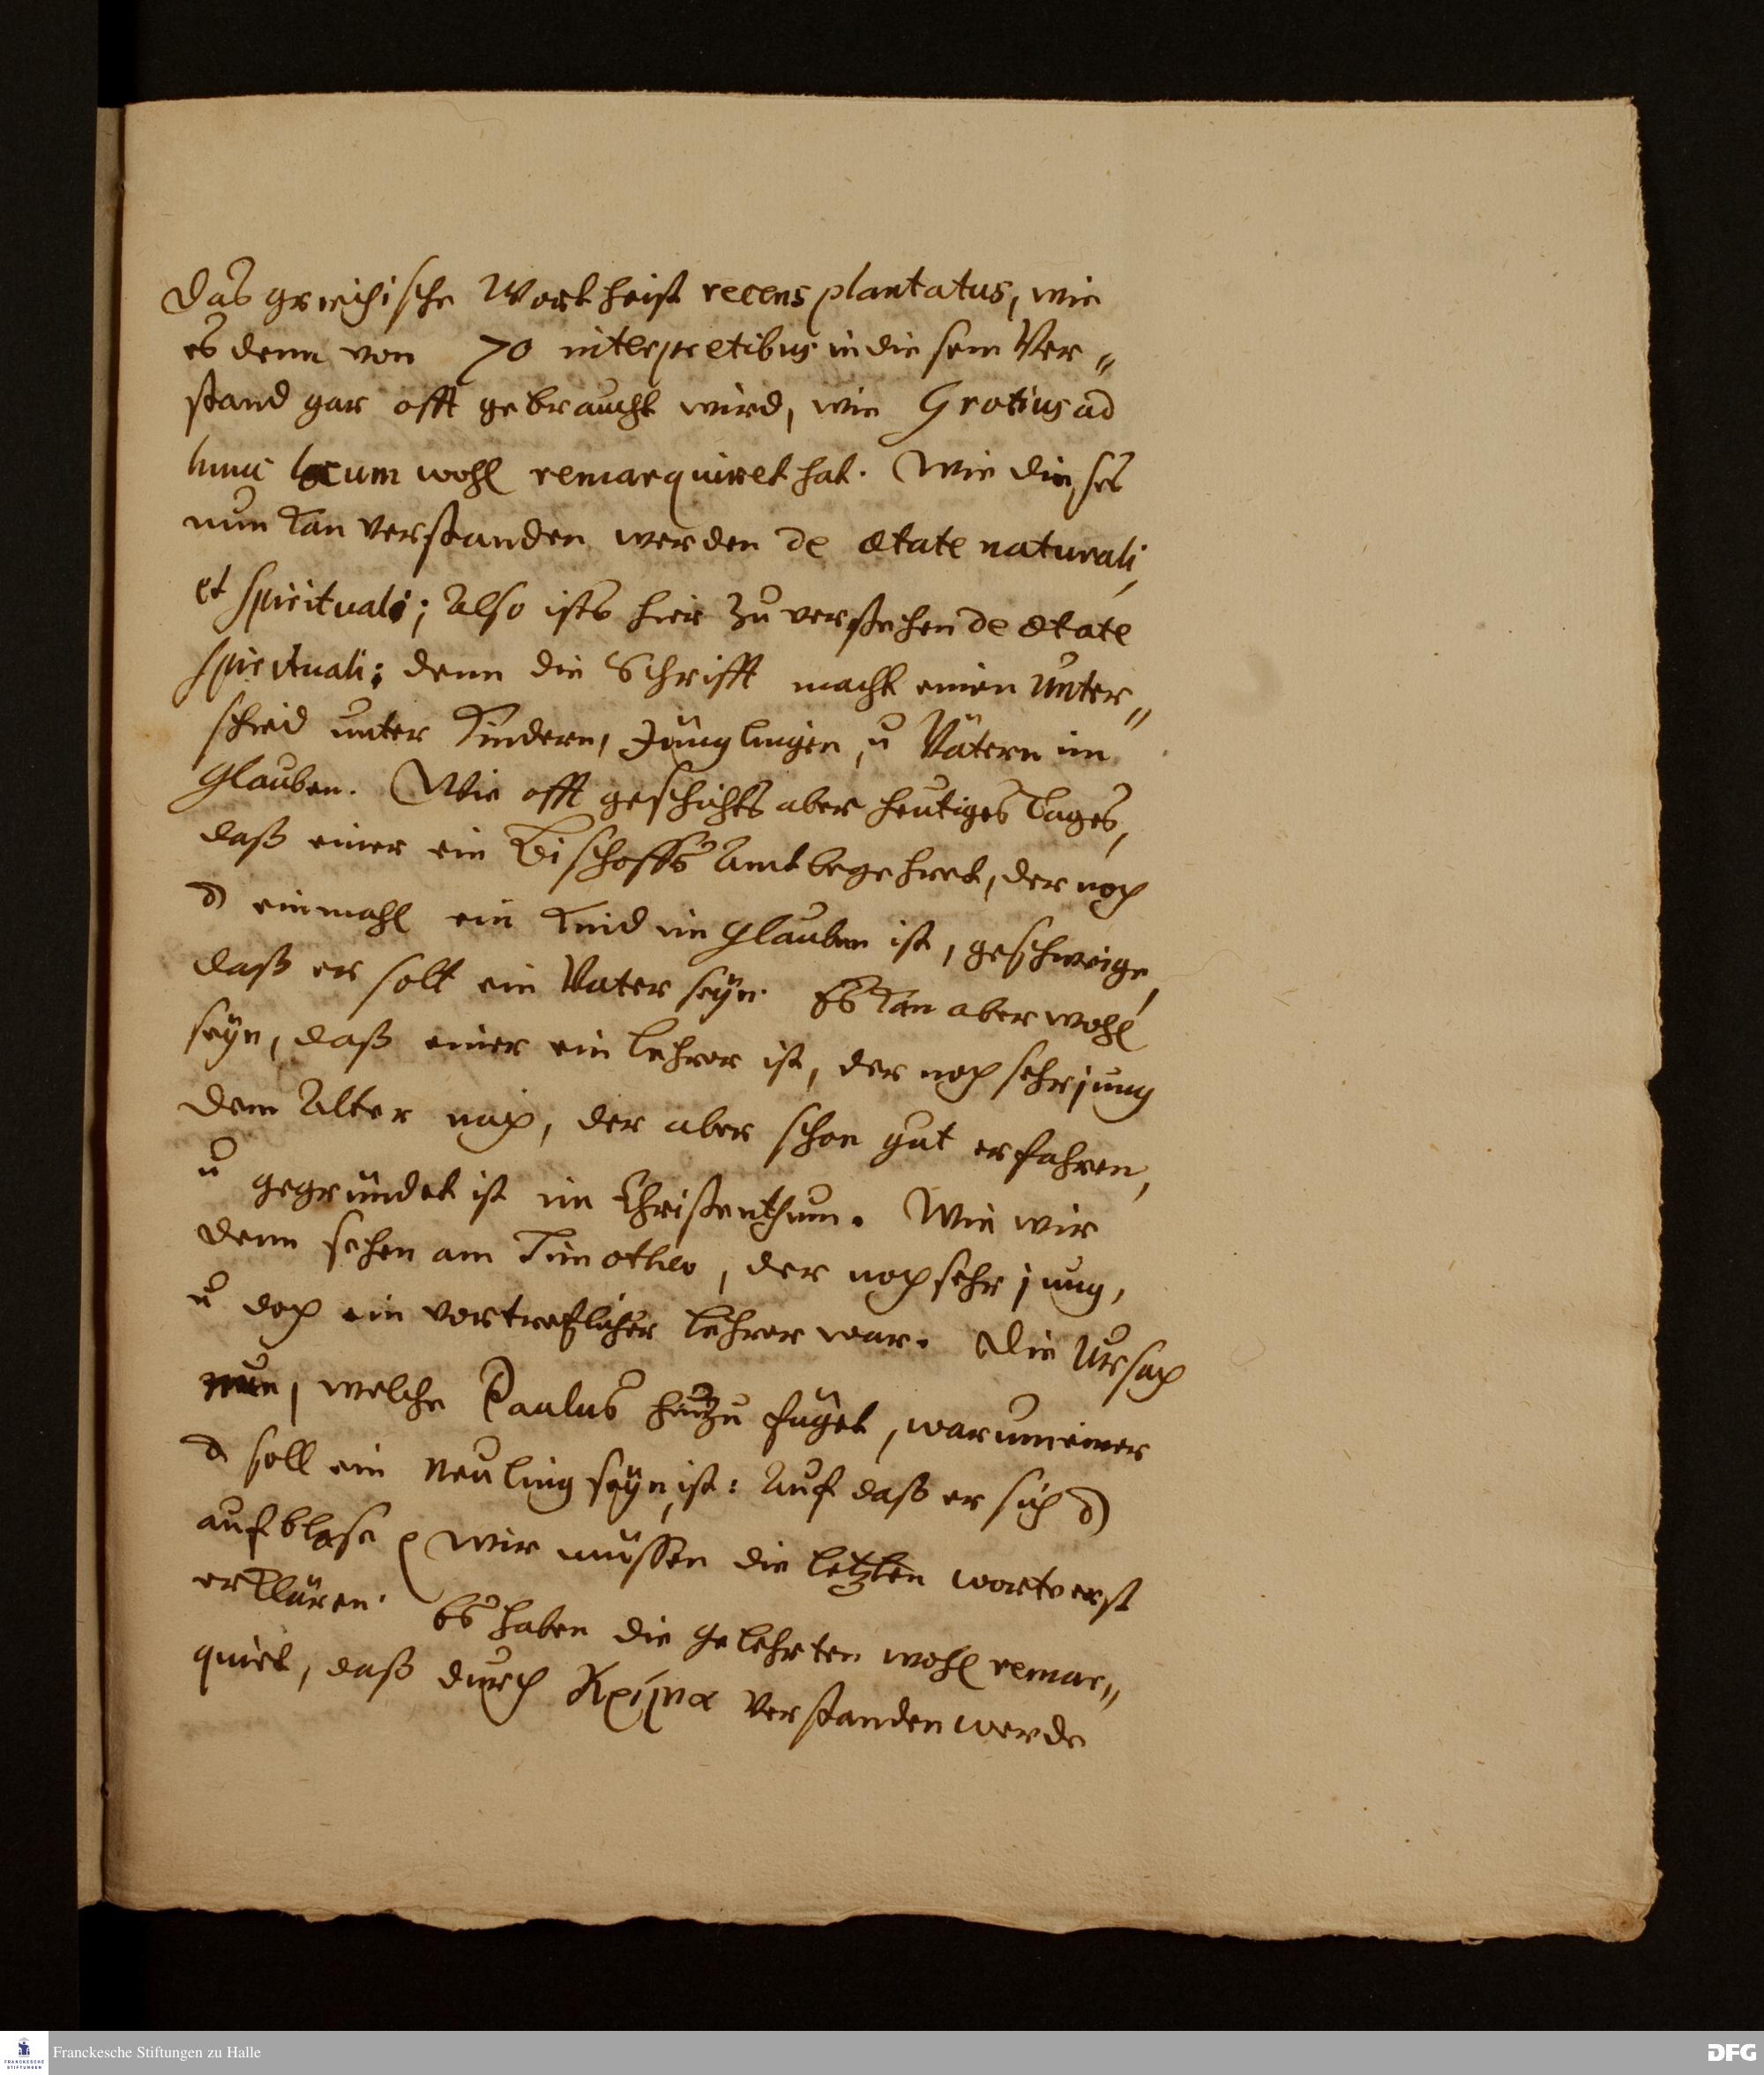 Das griechische Wort heist recens plantatus, wie
es denn von 70 interpretibus in diesem Ver„
stand gar offt gebraucht wird, wie Grotius ad
hunc locum wohl remarquiret hat. Wie dieses
nun kan verstanden werden de ætate naturali,
et spirituali; Also ists hier zu verstehen de ætate
spirituali; denn die Schrifft macht einen Unter„
scheid unter Kindern, Jünglingen, u Vätern im
Glauben. Wie offt geschichts aber heutiges Tages,
daß einer ein Bischoffs Amt begehret, der noch
einmahl ein Kind im Glauben ist, geschweige,
daß er solt ein Vater seÿn. Es kan aber wohl
seÿn, daß einer ein Lehrer ist, der noch sehr jung
dem Alter nach, der aber schon gut erfahren,
u gegründet ist im Christenthum. Wie wir
denn sehen am Timotheo, der noch sehr jung,
u doch ein vortreflicher Lehrer war. Die Ursach
nun, welche Paulus hinzu füget, warum einer
soll ein Neuling seÿn, ist: Auf daß er sich
aufblase wir müssen die letzten worte erst
erklären. Es haben die Gelehrten wohl remar„
quirt, daß durch Κρίμα verstanden werde
Franckesche Stiftungen zu Halle
FRANCKESCHE
STIFTUNGEN
DFG